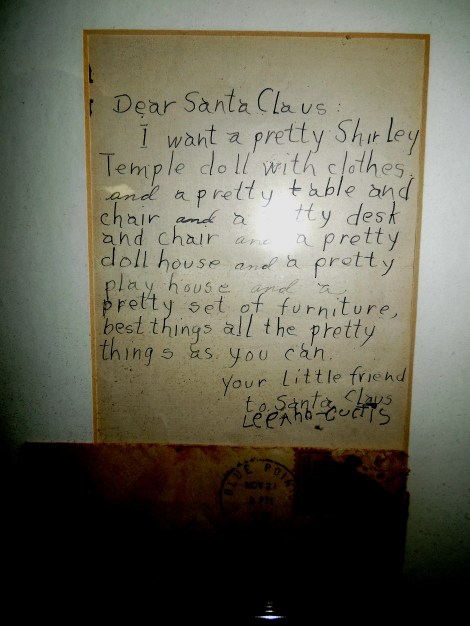 Dear Santa Claus:
I want a pretty Shirley
Temple doll with clothes,
and a pretty table and
chair and a tty desk
and chair and a pretty
doll house and a pretty
play house and a
pretty set of furniture,
best things all the pretty
things as you can.
your Little friend
to Santa Claus
BLUE POINT
NOV 21
PM